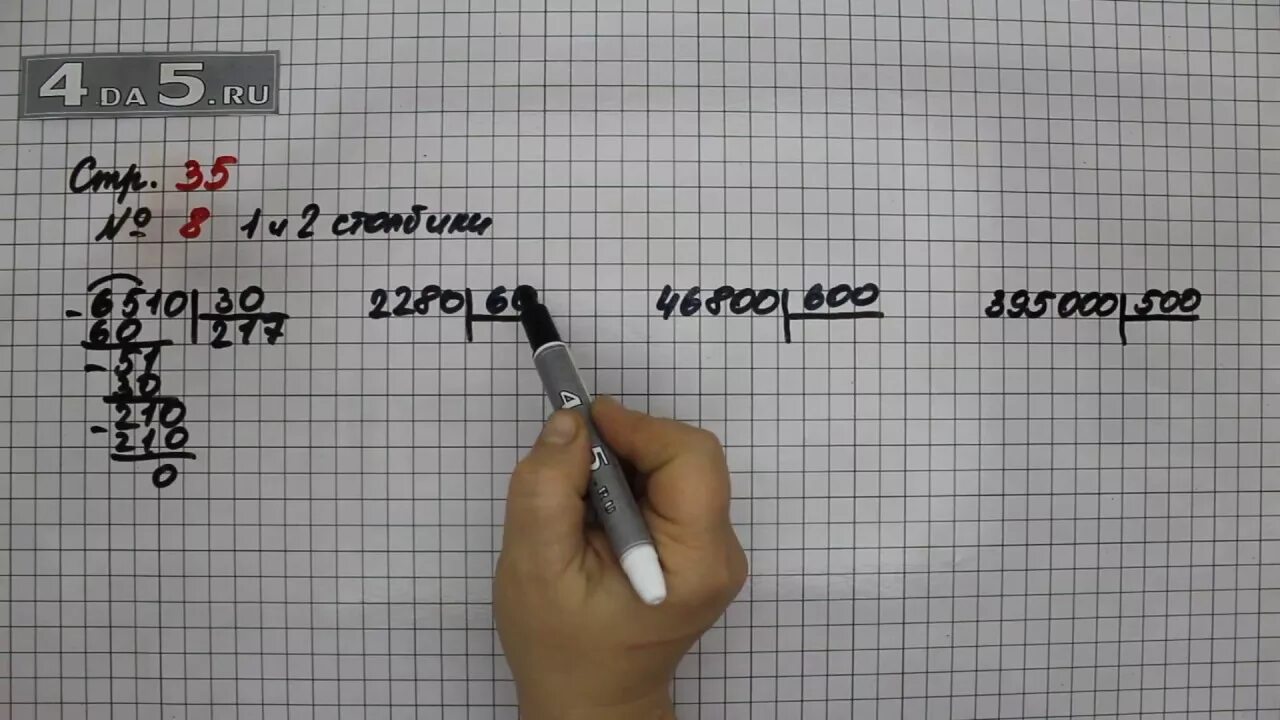 4.DA 5.RU
Стр. 35
№ 8 1 и 2 столбики
- 6510 | 30
60 | 217
- 51
30
- 210
210
0
2280 | 60
46800 | 600
395000 | 500
45.RU